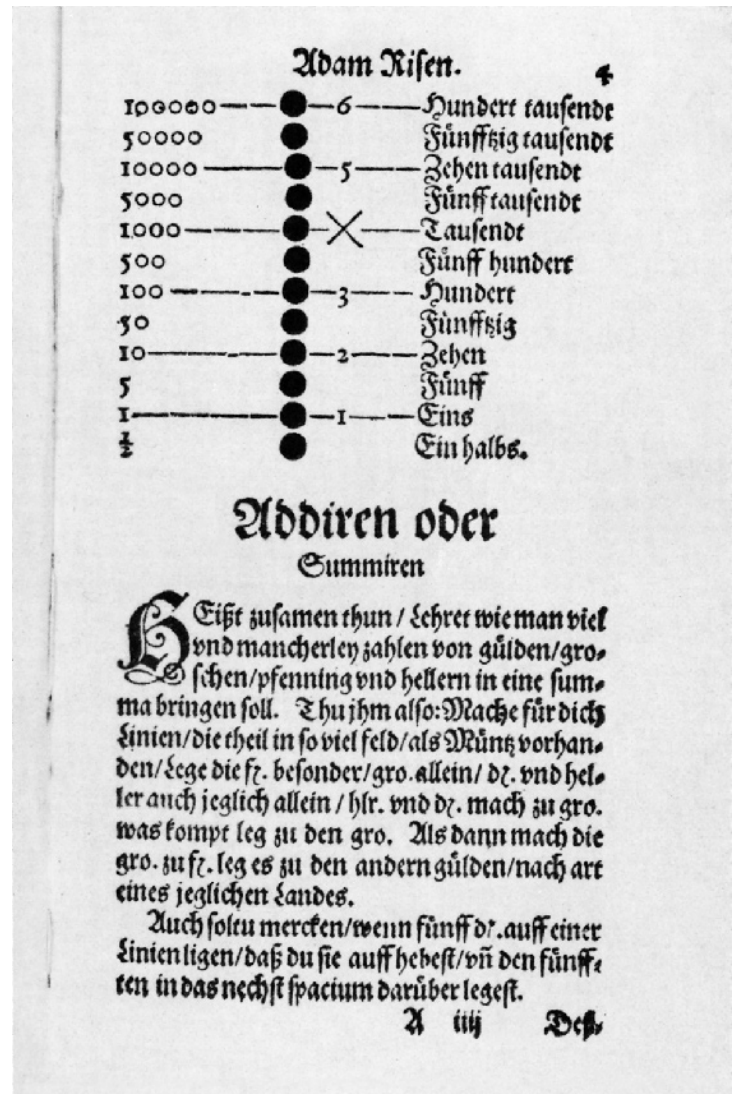 Adam Risen. 4
100000 6 Hundert tausendt
50000 Fünfftzig tausendt
10000 5 Zehen tausendt
5000 Fünff tausendt
1000 X Tausendt
500 Fünff hundert
100 3 Hundert
50 Fünfftzig
10 2 Zehen
5 Fünff
1 1 Eins
½ Ein halbs.
Addiren oder
Summiren
HEißt zusamen thun / Lehret wie man viel
vnd mancherley zahlen von gülden/gro-
schen/pfenning vnd hellern in eine sum-
ma bringen soll. Thu jhm also: Mache für dich
Linien/die theil in so viel feld/als Müntz vorhan-
den/Lege die fl. besonder/gro. allein / dz. vnd hel-
ler auch jeglich allein / hlr. vnd dz. mach zu gro.
was kompt leg zu den gro. Als dann mach die
gro. zu fl. leg es zu den andern gülden/nach art
eines jeglichen Landes.
Auch soltu mercken/wenn fünff dz. auff einer
Linien ligen/daß du sie auff hebest/vñ den fünff-
ten in das nechst spacium darüber legest.
A iiij Deß-